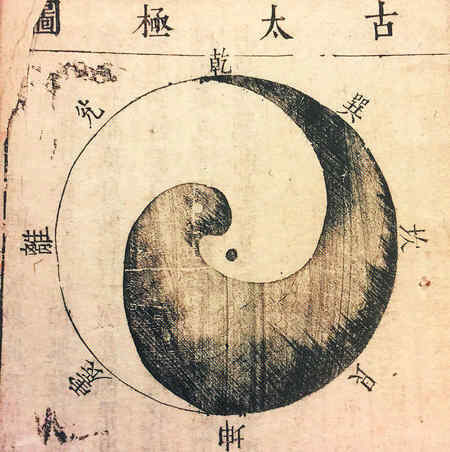 古太極圖
乾
巽
坎
艮
坤
震
離
兌